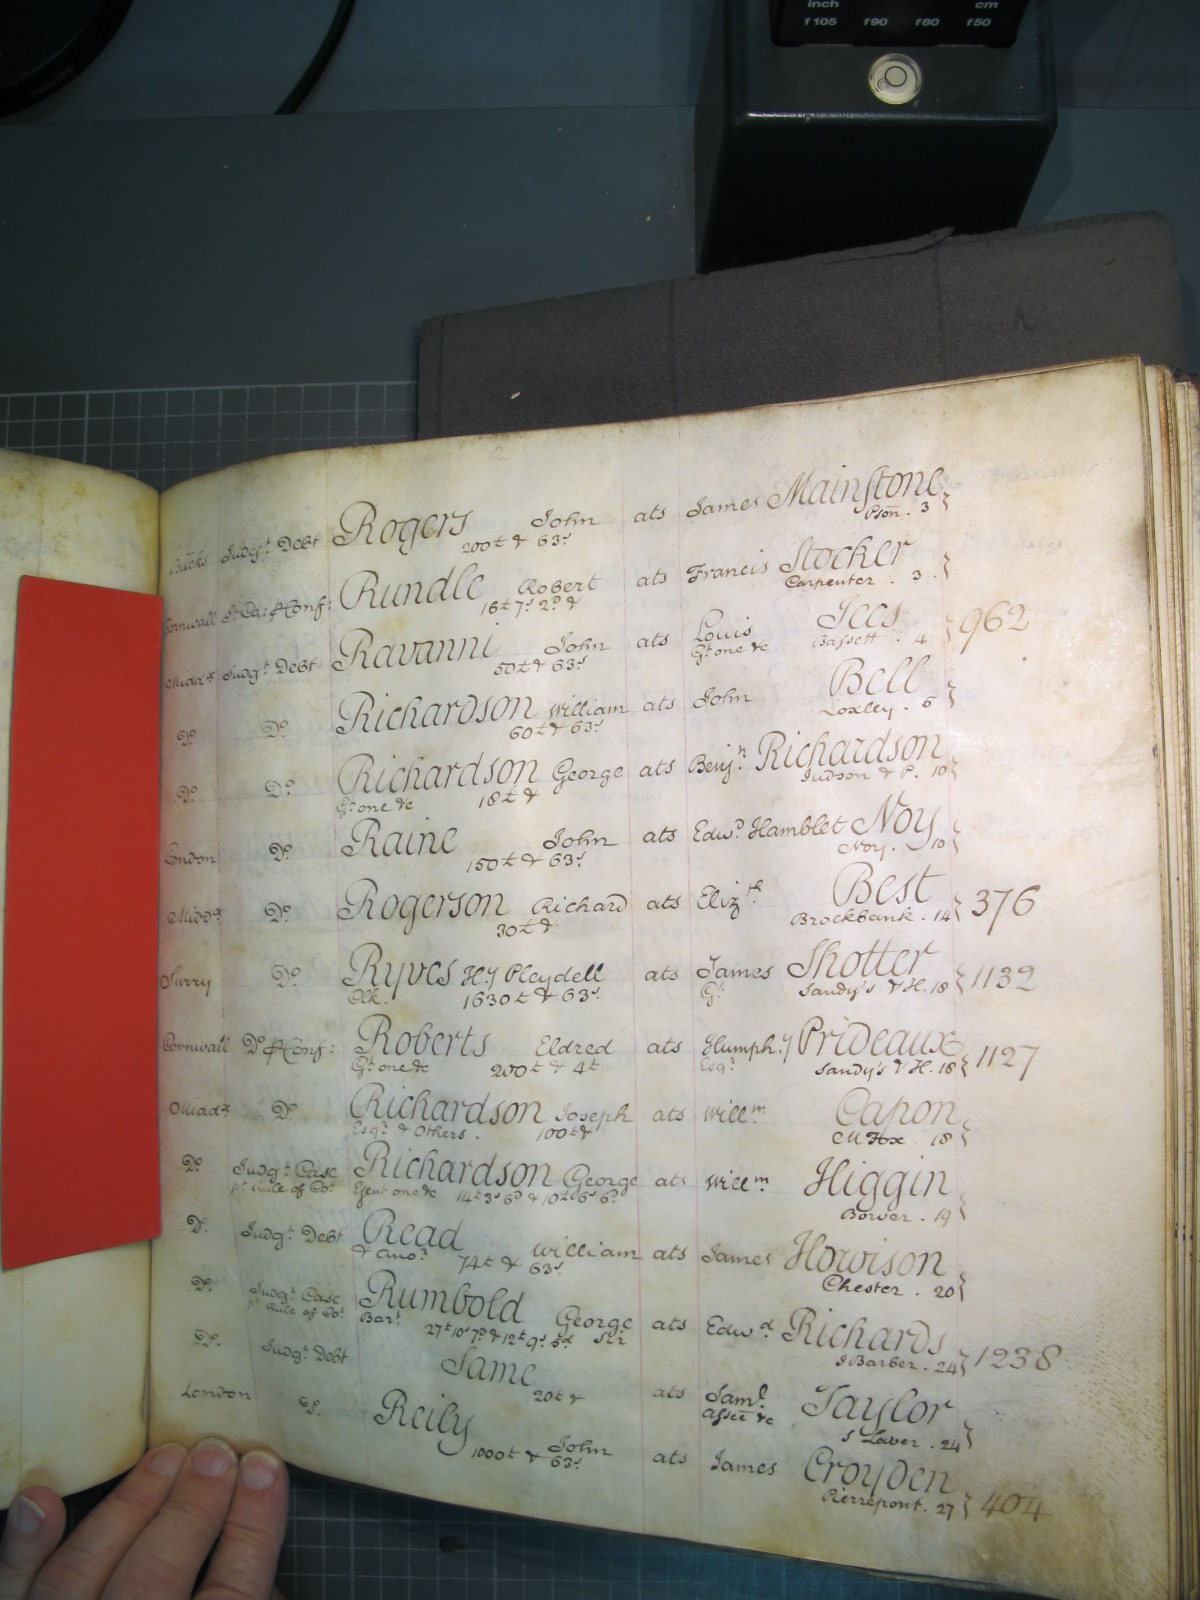 inch cm
f105 f90 f80 f50
PHILIPS
Bucks Judgt. Debt Rogers John ats James Mainstone
200£ & 63s Pson. 3
Cornwall Rundle Robert ats Francis Stocker
16£ 7s 2d & Carpenter. 3
Middx Judgt. Debt Ravanni John ats Louis Iees 962
50£ & 63s Gt. one &c Bassett. 4
Do. Do. Richardson William ats John Bell
60£ & 63s Loxley. 6
Do. Do. Richardson George ats Benjn. Richardson
Gt. one &c 18£ & Judson & P. 10
London Do. Raine John ats Edwd. Hamblet Noy
150£ & 63s Noy. 10
Middx Do. Rogerson Richard ats Elizth Best 376
30£ & Brockbank. 14
Surry Do. Ryves Hy Pleydell ats James Shotter 1132
Clk. 1630£ & 63s Gt. Sandy's & H. 18
Cornwall Do. & Conf: Roberts Eldred ats Humphy Prideaux 1127
Gt. one &c 200£ & 4£ Esqr. Sandy's & H. 18
Middx Do. Richardson Joseph ats Willm. Capon
Esqr. & Others. 100£ & 18
Do. Judgt. Case Richardson George ats Willm. Higgin
pt. Rule of Cot. Gent one &c 14£ 3s 6d & 10£ 6s 6d Bower. 19
Do. Judgt. Debt Read William ats James Howison
& anor. 74£ & 63s Chester. 20
Do. Judgt. Case Rumbold George ats Edwd. Richards 1238
pt. Rule of Cot. Bart. 27£ 10s 7d & 12£ 9s 5d Sir J Barber. 24
Do. Judgt. Debt Same ats Saml. Taylor
20£ & Assee &c J Laver. 24
London Do. Reily John ats James Croyden 404
1000£ & 63s Pierrepont. 27